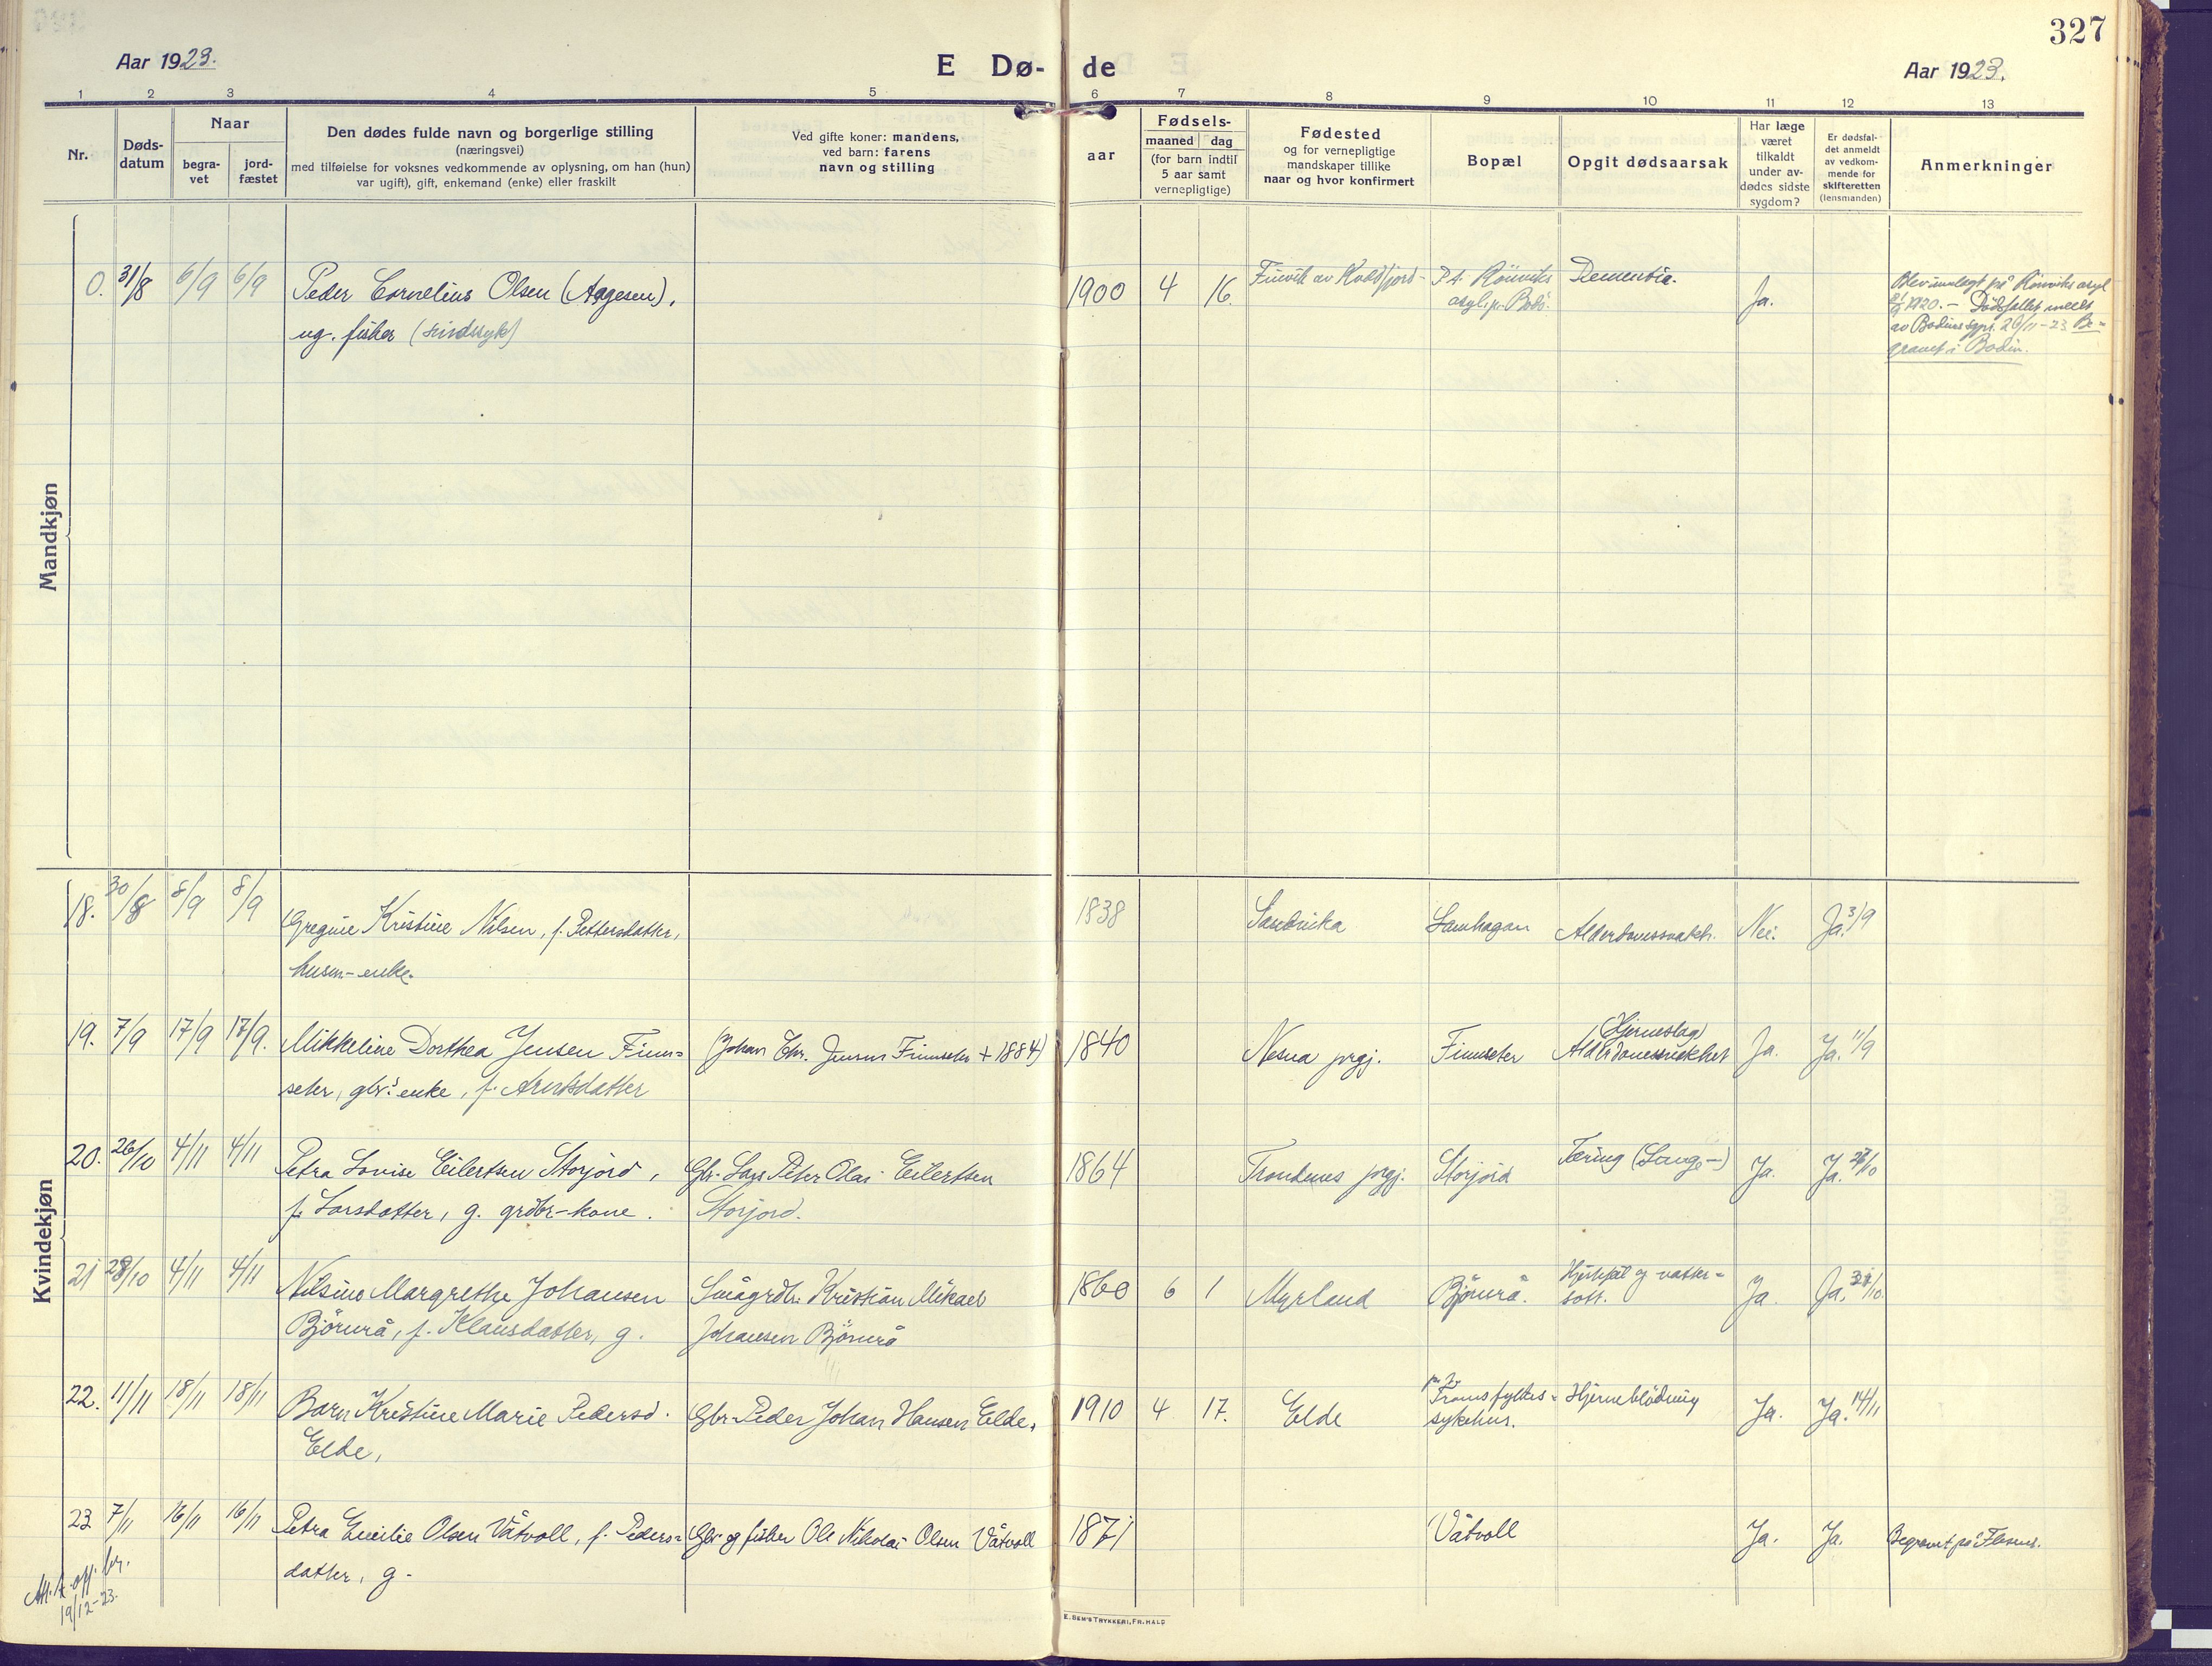 327
Aar 1923.
E Dø- de
Aar 1923.
1 2 3 4 5 6 7 8 9 10 11 12 13
Nr.
Døds-
datum
Naar
begra-
vet
jord-
fæstet
Den dødes fulde navn og borgerlige stilling
(næringsvei)
med tilføielse for voksnes vedkommende av oplysning, om han (hun)
var ugift), gift, enkemand (enke) eller fraskilt
Ved gifte koner: mandens,
ved barn: farens
navn og stilling
aar
Fødsels-
maaned dag
(for barn indtil
5 aar samt
vernepligtige)
Fødested
og for vernepligtige
mandskaper tillike
naar og hvor konfirmert
Bopæl
Opgit dødsaarsak
Har læge
været
tilkaldt
under av-
dødes sidste
sygdom?
Er dødsfal-
det anmeldt
av vedkom-
mende for
skifteretten
(lensmanden)
Anmerkninger
Mandkjøn
0. 31/8 6/9 6/9 Peder Cornelius Olsen (Aagesen),
ug. fisker (sindssyk)
1900 4 16.
Kvædfjord
P. t. Rönviks
asyl, pr. Bodö.
Dementia.
Ja.
Blev innlagt på Rönviks asyl
1920. – Dödsfallet meldt
av Bodins sgpr. 26/11-23 Be-
gravet i Bodin.
Kvindekjøn
18. 30/8 8/9 8/9 Gregine Kristine Nilsen, f. Pettersdatter,
husm-enke.
1838 Sandvika Alderdomssvakh. Nei. Ja. 3/9
19. 7/9 17/9 17/9. Mikkeline Dorthea Jensen Finn-
seter, gbr.s enke, f. Arntsdatter
(Johan Chr. Jensen Finnseter + 1884)
1840 Nesna prgj. Finnseter
(Hjerneslag)
Alderdomssvakhet
Ja. Ja. 11/9
20. 26/10 4/11 4/11 Petra Lovise Eilertsen Storjord,
f. Larsdatter, g. grdbr-kone.
Gbr. Lars Peter Olai Eilertsen
Storjord.
1864 Trondenes prgj. Storjord Tæring (Lunge-) Ja. Ja. 27/10
21 28/10 4/11 4/11 Nilsine Margrethe Johansen
Björnrå, f. Klausdatter, g.
Smågrdbr. Kristian Mikael
Johansen Björnrå
1860 6 1 Myrland Björnrå.
Hjertefeil og vatter-
sott.
Ja. Ja. 31/10.
22. 11/11 18/11 18/11 Barn Kristine Marie Pedersd.
Elde,
Gbr. Peder Johan Hansen Elde.
1910 4 17. Elde
Troms fylkes-
sykehus.
Hjerneblödning Ja. Ja. 14/11
23 7/11 16/11 16/11 Petra Emilie Olsen Våtvoll, f. Peders-
datter, g.
Gbr. og fisker Ole Nikolai Olsen Våtvoll
1871 Våtvoll Ja. Ja. Begravet på Flesnes.
19/12-23.
E. SEM'S TRYKKERI, FR. HALD